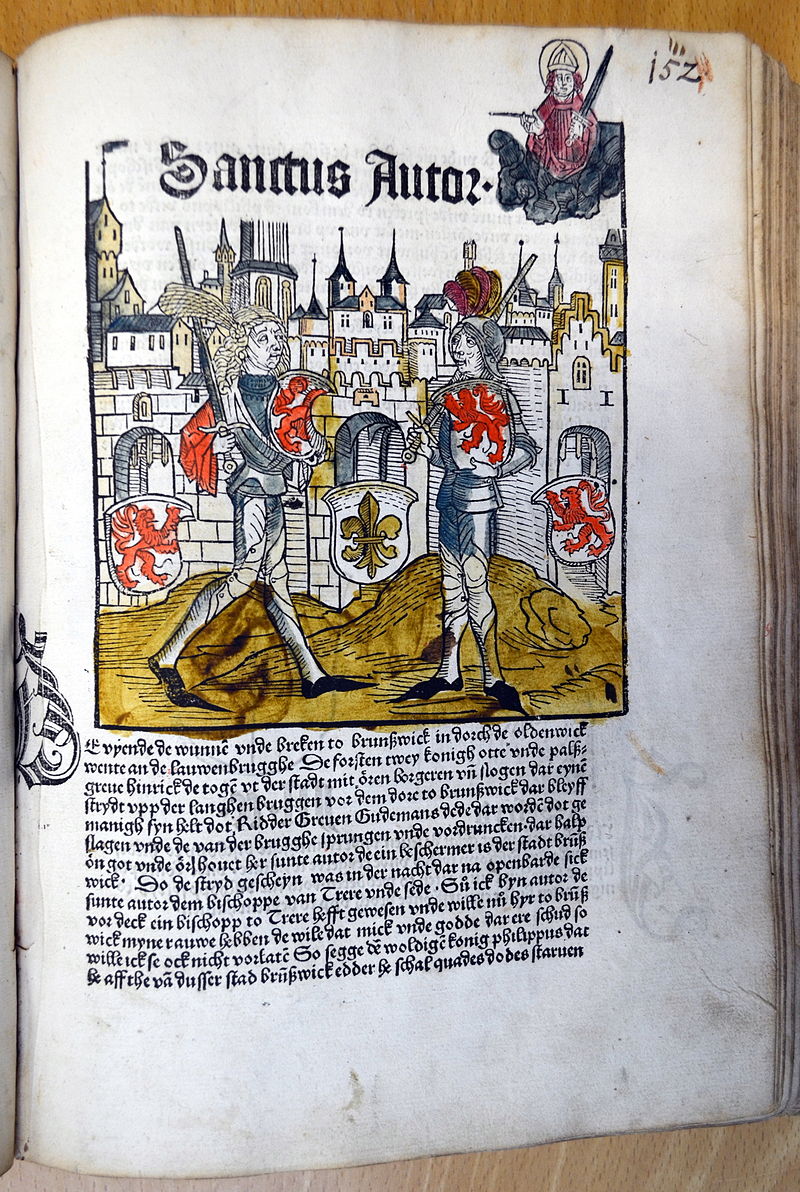 152
Sanctus Autor.
E vyende de wunnē vnde breken to brunßwick in dorch de oldenwick
wente an de lauwenbrugghe De forsten twey konigh otte vnde palß-
greue hinrick de togē vt der stadt mit ören borgeren vn̄ slogen dar eynē
strydt vpp der langhen bruggen vor dem dore to brunßwick dar bleyff
manigh fyn helt dot Ridder Greuen Gudemans dede dar wordē dot ge
slagen vnde de van der brugghe sprungen vnde vordruncken. dar halp
ön got vnde ör houet her sunte autor de ein beschermer is der stadt brūß
wick. Do de stryd gescheyn was in der nacht dar na openbarde sick
sunte autor dem bisschoppe van Trere vnde sede. Sü ick byn autor de
vor deck ein bischopp to Trere hefft gewesen vnde wille nů hyr to brūß
wick myne rauwe hebben de wile dat mick vnde godde dar ere schud so
wille ick se ock nicht vorlatē So segge dē woldigē konig philippus dat
he aff the vā dusser stad brūßwick edder he schal quades dodes staruen